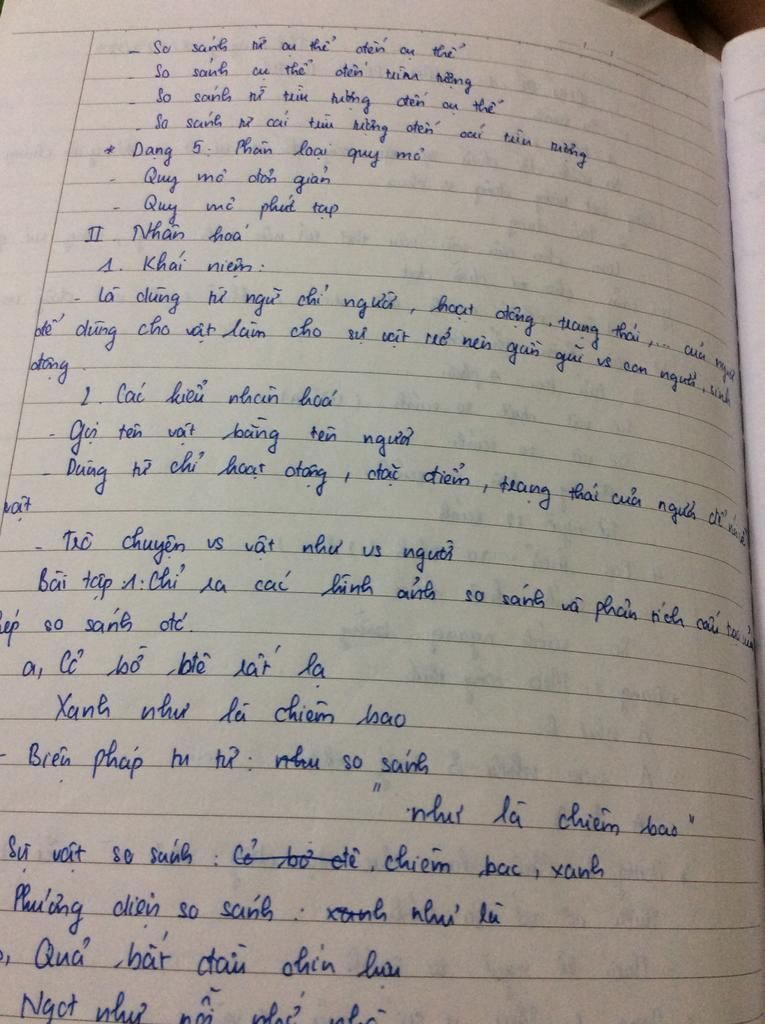 - So sánh từ cụ thể đến cụ thể
- So sánh cụ thể đến trừu tượng
- So sánh từ trừu tượng đến cụ thể
- So sánh từ cái trừu tượng đến cái trừu tượng
* Dạng 5: Phân loại quy mô
- Quy mô đơn giản
- Quy mô phức tạp
II Nhân hoá
1. Khái niệm:
- Là dùng từ ngữ chỉ người, hoạt động, trạng thái,... của người
để dùng cho vật làm cho sự vật trở nên gần gũi vs con người, sinh
động.
2. Các kiểu nhân hoá
- Gọi tên vật bằng tên người
- Dùng từ chỉ hoạt động, đặc điểm, trạng thái của người để nói về
vật
- Trò chuyện vs vật như vs người
Bài tập 1: Chỉ ra các hình ảnh so sánh và phân tích cấu tạo của
phép so sánh đó.
a, Cỏ bờ đê rất lạ
Xanh như là chiêm bao
- Biện pháp tu từ: như so sánh
"như là chiêm bao"
Sự vật so sánh: Cỏ bờ đê, chiêm bao, xanh
Phương diện so sánh: xanh như là
b, Quả bắt đầu chín lựu
Ngọt như nỗi nhớ nhà